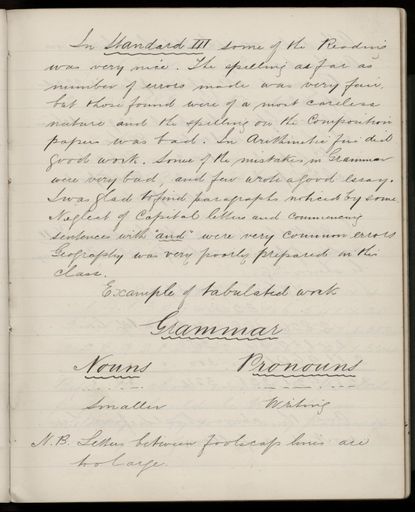 In Standard III some of the Reading
was very nice. The spelling as far as
number of errors made was very fair,
but those found were of a most careless
nature and the spelling on the Composition
papers was bad. In Arithmetic five did
good work. Some of the mistakes in Grammar
were very bad, and few wrote a good essay.
I was glad to find paragraphs noticed by some
Neglect of Capital letters and commencing
sentences with "and" were very common errors
Geography was very poorly prepared in this
class.
Example of tabulated work
Grammar
Nouns Pronouns
Smaller Writing
N.B. Letters between foolscap lines are
too large.